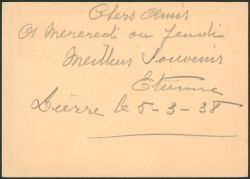 Chers Amis
A Mercredi ou Jeudi
Meilleurs Souvenir
Etienne
Lierre le 5-3-38